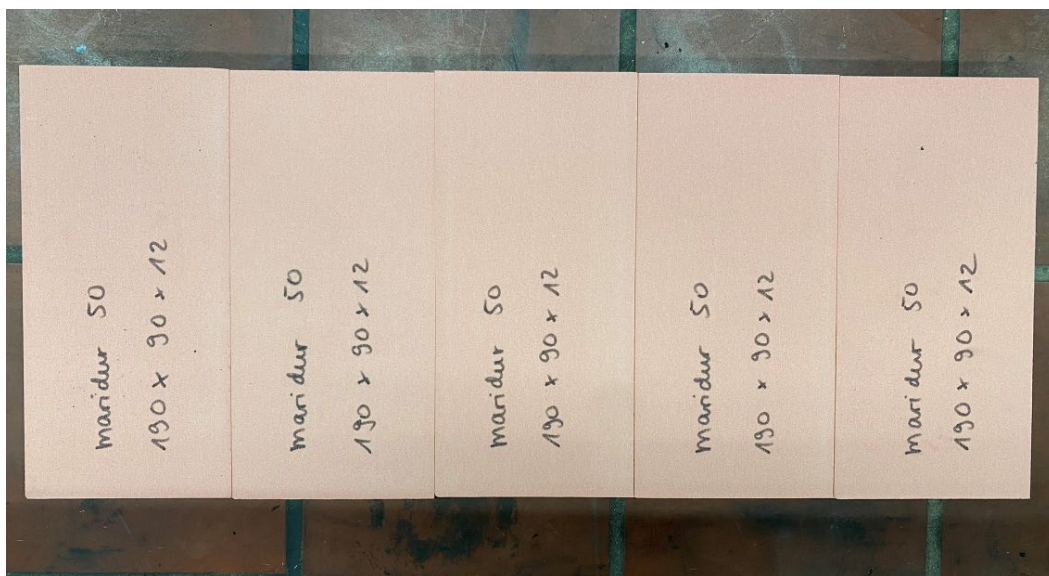 maridur 50
190 x 90 x 12
maridur 50
190 x 90 x 12
maridur 50
190 x 90 x 12
maridur 50
190 x 90 x 12
maridur 50
190 x 90 x 12